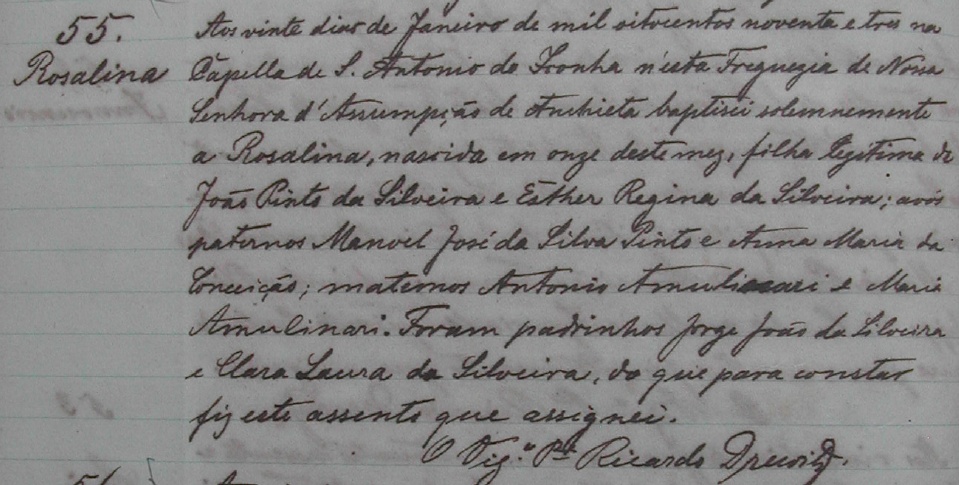 55.
Rosalina
Aos vinte dias de Janeiro de mil oitocentos noventa e tres na
Capella de S. Antonio do Noronha n'esta Freguezia de Nossa
Senhora d'Assumpção de Anchieta baptisei solemnemente
a Rosalina, nascida em onze deste mez, filha legitima de
João Pinto da Silveira e Esther Regina da Silveira; avós
paternos Manoel José da Silva Pinto e Anna Maria da
Conceição; maternos Antonio e Maria
Amulinari. Foram padrinhos Jorge João da Silveira
e Clara Laura da Silveira, do que para constar
fiz este assento que assignei.
O Vig.º P.e Ricardo